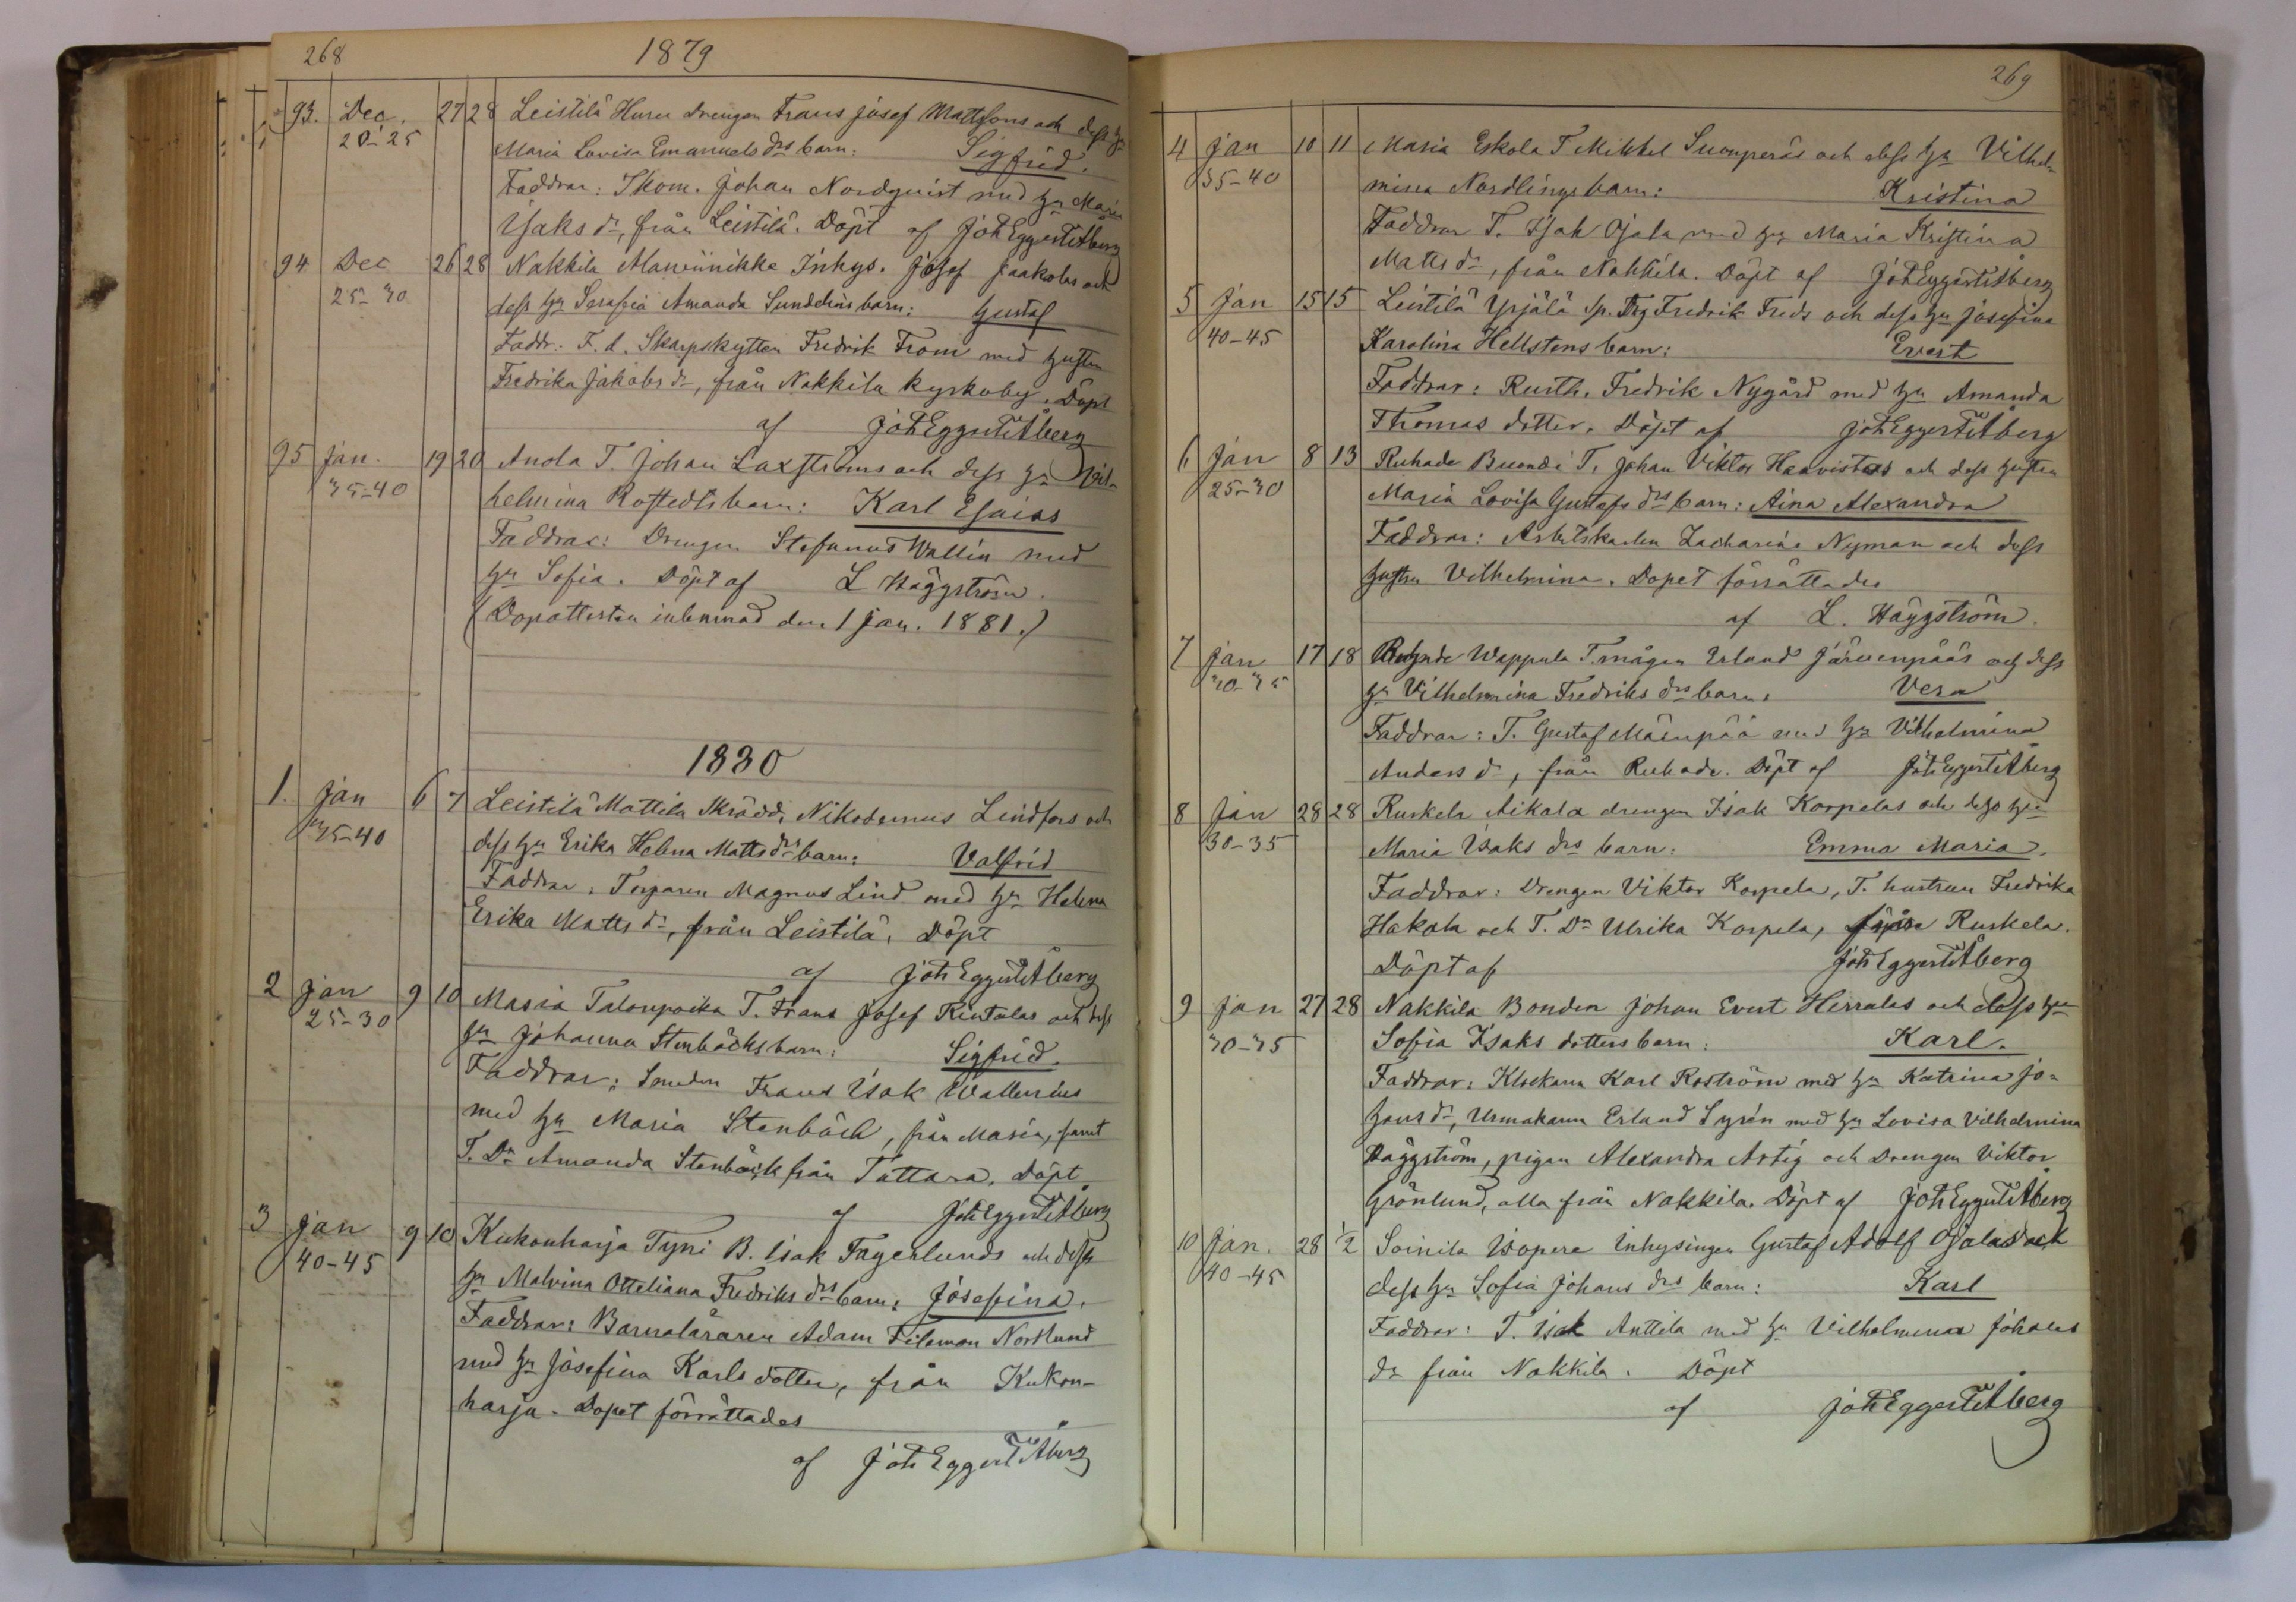 268
1879
93. Dec. 27 28 Leistilä Huru Drengen Frans Josef Mattsons och dess hu
20-25 Maria Lovisa Emanuels drs barn: Sigfrid.
Faddrar: Skom. Johan Nordquist med hu Maria
Isaks dr, från Leistilä. Döpt af Joh Eggert Åberg
94 Dec 26 28 Nakkila Inhys. Josef Jaakolas och
25-30 dess hu Serafia Amanda Sundelins barn: Gustaf
Faddr. F. d. Skarpskytten Fredrik From med hustru
Fredrika Jakobs dr, från Nakkila kyrkoby. Döpt
af Joh Eggert Åberg
95 Jan. 19 20 Anola T. Johan Laxströms och dess hu Vil-
35-40 helmina Rostedts barn: Karl Esaias
Faddrar: Drengen Stefanus Wallin med
hu Sofia. Döpt af L Häggström.
(Dopattesten inlemnad den 1 Jan. 1881.)
1880
1. Jan 6 7 Leistilä Mattila Skrädd. Nikodemus Lindfors och
35-40 dess hu Erika Helena Matts drs barn: Valfrid
Faddrar: Torparen Magnus Lind med hu Helena
Erika Matts dr, från Leistilä. Döpt
af Joh Eggert Åberg
2 Jan 9 10 Masia Talonpoika T. Frans Josef Rintalas och dess
25-30 hu Johanna Stenbäcks barn: Sigfrid.
Faddrar: Smeden Frans Isak Wallenius
med hu Maria Stenbäck, från Masia, samt
T. Dr Amanda Stenbäck från Tattara. Döpt
af Joh Eggert Åberg
3 Jan 9 10 Kukonharja Tyni B. Isak Fagerlunds och dess
40-45 hu Malvina Otteliana Fredriks drs barn: Josefina.
Faddrar: Barnaläraren Adam Filemon Norrlund
med hu Josefina Karls dotter, från Kukon-
harja. Dopet förrättades
af Joh Eggert Åberg
269
4 Jan 10 11 Masia Eskola T Mikkel Suonperäs och dess hu Vilhel-
35-40 mina Nordlings barn: Kristina
Faddrar T. Isak Ojala med hu Maria Kristina
Matts dr, från Nakkila. Döpt af Joh Eggert Åberg
5 Jan 15 15 Leistilä Yrjälä Sp. Trg Fredrik Freds och dess hu Josefina
40-45 Karolina Hellstens barn: Evert
Faddrar: Rusth. Fredrik Nygård med hu Amanda
Thomas dotter. Döpt af Joh Eggert Åberg
6 Jan 8 13 Ruhade Buondi T. Johan Viktor Haavistos och dess hustru
25-30 Maria Lovisa Gustafs drs barn: Aina Alexandra
Faddrar: Arbetskarlen Zacharias Nyman och dess
hustru Vilhelmina. Dopet förrättades
af L. Häggström.
7 Jan 17 18 Wappula T.mågen Erland Järvenpääs och dess
30-35 hu Vilhelmina Fredriks drs barn. Vera
Faddrar: T. Gustaf Mäenpää med hu Vilhelmina
Anders d, från Ruhade. Döpt af Joh Eggert Åberg
8 Jan 28 28 Ruskela Aikala drengen Isak Korpelas och dess hu
30-35 Maria Isaks drs barn: Emma Maria.
Faddrar: Drengen Viktor Korpela, T. hustrun Fredrika
Hakola och T. Dr Ulrika Korpela, från Ruskela.
Döpt af Joh Eggert Åberg
9 Jan 27 28 Nakkila Bonden Johan Evert Herralas och dess hu
30-35 Sofia Isaks dotters barn: Karl.
Faddrar: Klockaren Karl Roström med hu Katrina Jo-
hans dr, Urmakaren Erland Syrén med hu Lovisa Vilhelmina
Häggström, pigan Alexandra Artig och Drengen Viktor
Grönlund, alla från Nakkila. Döpt af Joh Eggert Åberg
10 Jan. 28 1/2 Soinila Wopere Inhysingen Gustaf Adolf Ojalas och
40-45 dess hu Sofia Johans drs barn: Karl
Faddrar: T. Isak Anttila med hu Vilhelmina Johans
dr från Nakkila. Döpt
af Joh Eggert Åberg